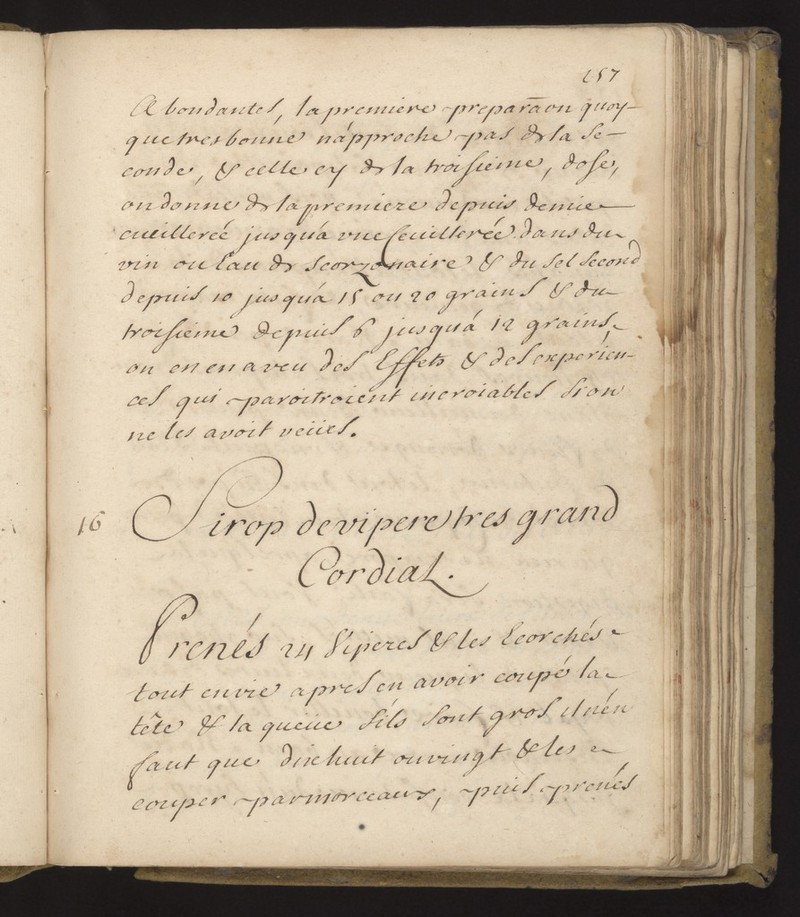 157
Abondantes, la premiere preparãon quoy-
que tres bonne n'approche pas de la se-
conde, & celle cy de la troisieme, dose,
on donne de la premiere depuis demie
cueilleréé jusqu'a une ceuilleréé dans du
vin ou l'au de scorzonaire & du sel second
depuis 10 jusqu'á 15 ou 20 grains & du
troisieme depuis 6 jusquá 12 grains,
on en en a veu des Effets & des experien-
ces qui paroitroient incroiables si on
ne les avoit veües.
16 Sirop de vipere tres grand
Cordial.
Prenés 24 Viperes & les Ecorchés
tout en vie apres en avoir coupé la
tête & la queüe s'ils sont gros il n'én
faut que dix huit ou vingt & les
couper par morceaux, puis prenés